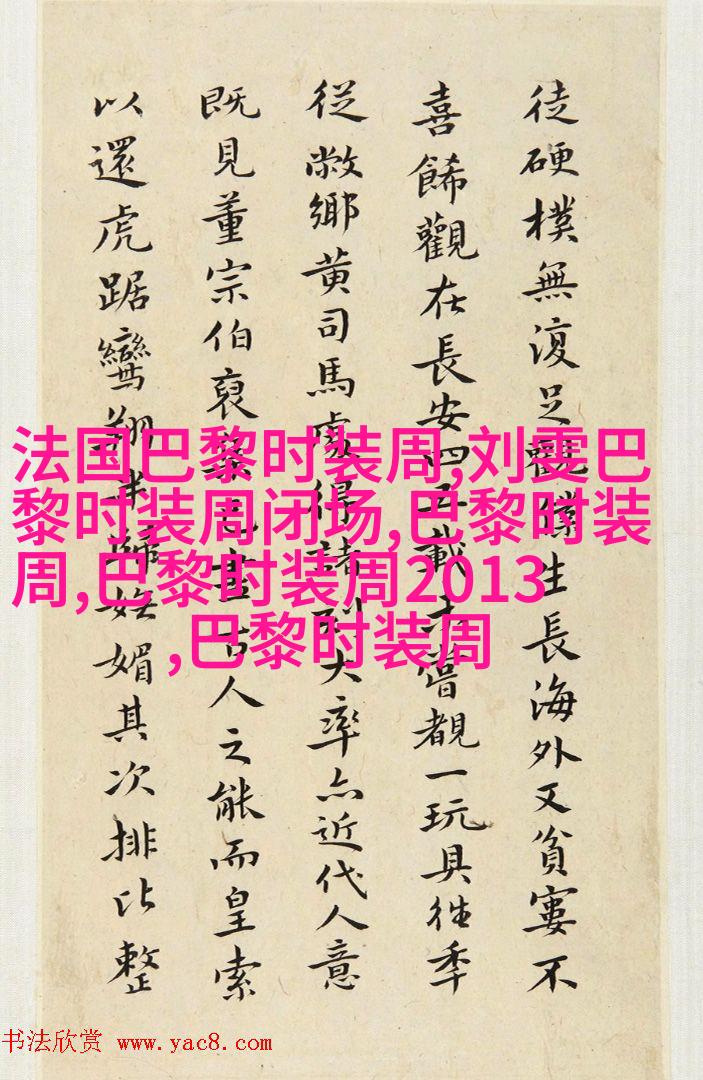 徒硬樸無復足觀僕生長海外又貧窶不
喜餙觀在長安四五載未嘗覩一玩具往年
從敝鄉黄司馬處得諸刻大率亦近代人意
既見董宗伯裒盡古人之能而皇索
以還虎踞鸞翔半歸嫵媚其次排比整
法国巴黎时装周,刘雯巴
黎时装周闭场,巴黎时装
周,巴黎时装周2013
,巴黎时装周
书法欣赏 www.yac8.com